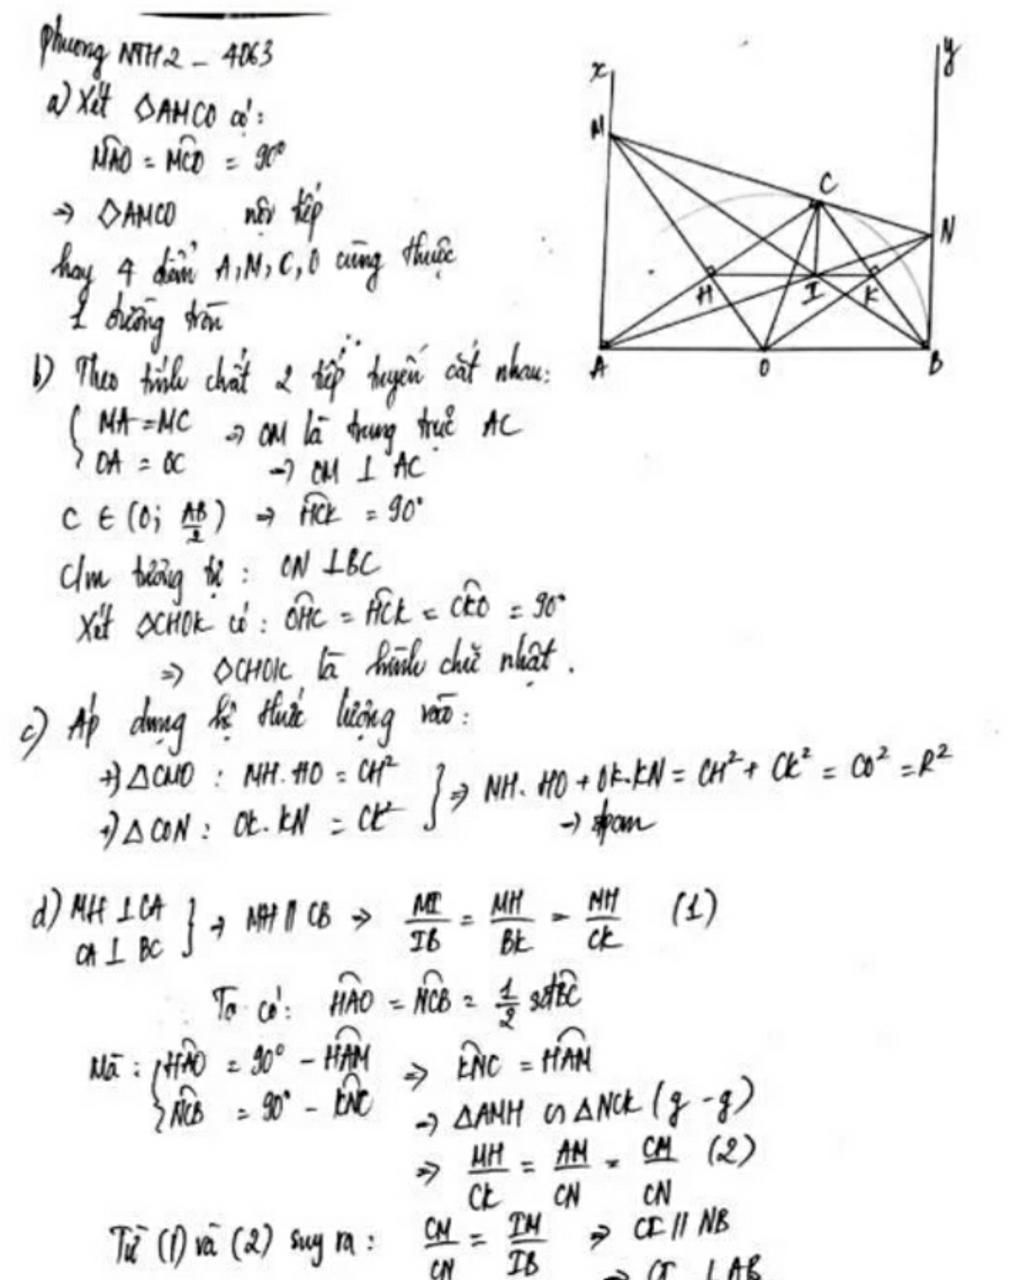 Phương NTH2 - 4063
a) Xét ◇AMCO có:
MAO = MCO = 90°
⇒ ◇AMCO nội tiếp
hay 4 điểm A, M, C, O cùng thuộc
1 đường tròn
b) Theo tính chất 2 tiếp tuyến cắt nhau:
{ MA = MC
OA = OC
⇒ OM là trung trực AC
→ OM ⊥ AC
C ∈ (O; AB/2) ⇒ HCK = 90°
C/m tương tự : ON ⊥ BC
Xét ◇CHOK có : OHC = HCK = CKO = 90°
⇒ ◇CHOK là hình chữ nhật.
c) Áp dụng hệ thức lượng vào:
+) △CMO : MH.HO = CH²
+) △CON : OK.KN = CK²
} ⇒ MH.HO + OK.KN = CH² + CK² = CO² = R²
→ đpcm
d) MH ⊥ CA
CA ⊥ BC
} → MH // CB ⇒ MI/IB = MH/BK = MH/CK (1)
Ta có: HAO = NCB = 1/2 sđBC
Mà : { HAO = 90° - HAM
NCB = 90° - KNC
⇒ KNC = HAM
→ △AMH ∽ △NCK (g - g)
⇒ MH/CK = AM/CN = CM/CN (2)
Từ (1) và (2) suy ra : CM/CN = IM/IB ⇒ CI // NB
⇒ CI ⊥ AB
x
y
M
C
N
H
I
K
A
O
B